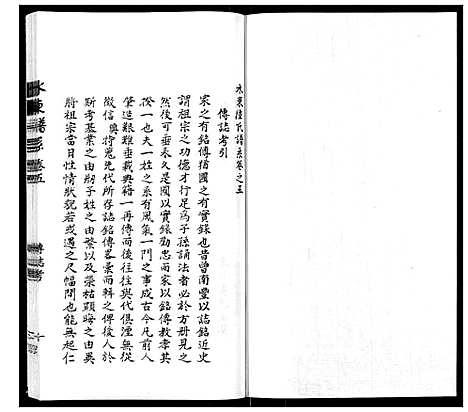 水東陸氏譜系卷之五
傳誌考引
家之有銘傳猶國之有實錄也昔曾南豐以誌銘近史
謂祖宗之功德才行足為子孫誦法者必於方冊見之
然後可垂來久也夫國以實錄勸忠而家以銘傳教孝
一也夫一姓之系有風氣一門之事成古今凡前人
肇造艱難垂載典籍一再傳而後往往與代俱湮無從
徵信與特蒐先代所存誌銘傳彙而輯之俾後人於
斯考基業之由剏子姓之由繁以及榮枯顯晦之由與
前祖宗當日性情狀貌若或遇之尺幅間也能無起仁
譜系 卷五